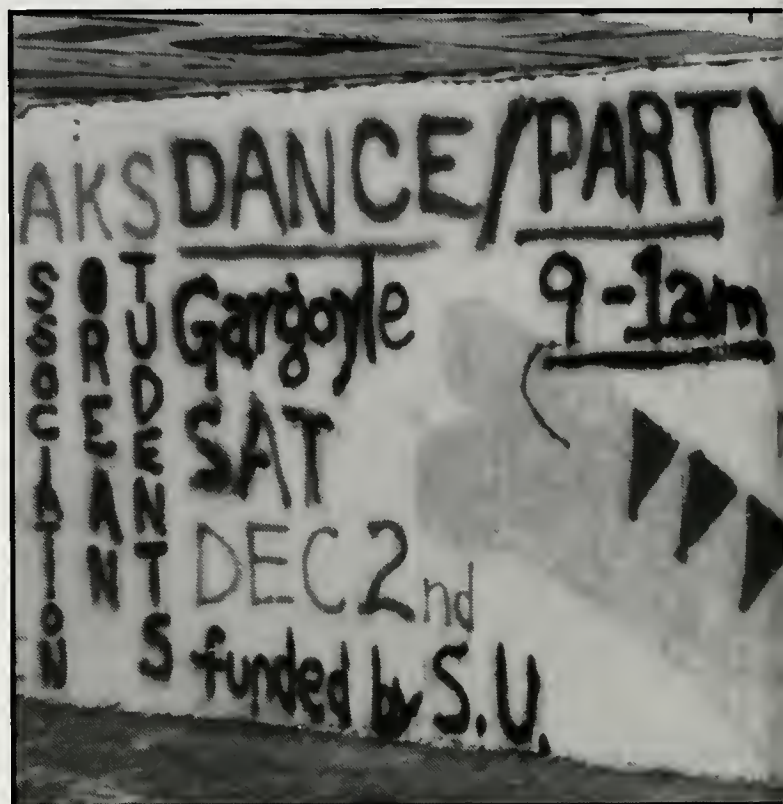 AKS DANCE/PARTY
ASSOCIATION
KOREAN
STUDENTS
Gargoyle
9-1am
SAT
DEC 2nd
funded by S.U.